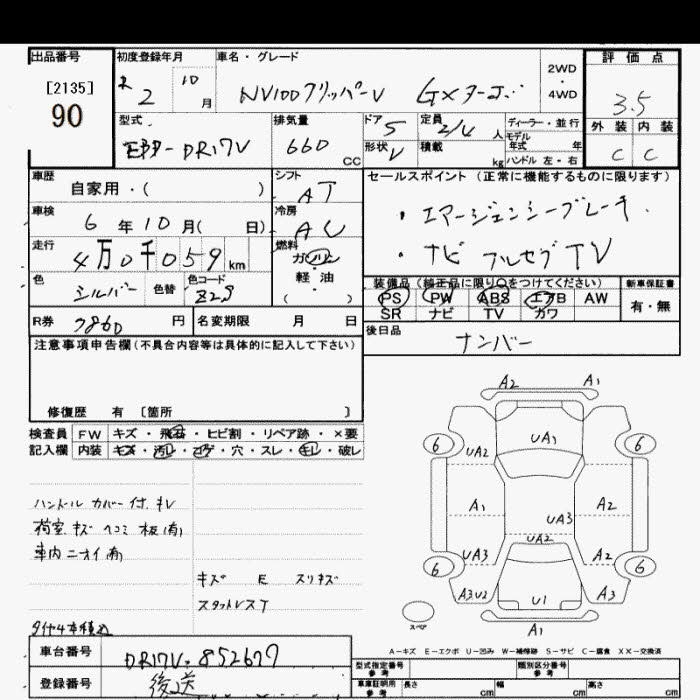 出品番号
[2135]
90
初度登録年月
R 2 10 月
車名・グレード
NV100クリッパーV GXターボ
2WD
・
4WD
評価点
3.5
外装 内装
C C
型式
DR17V
排気量
660 cc
ドア 5
定員 2/4 人
形状 V
積載 kg
ディーラー・並行
モデル
年式 年
ハンドル 左・右
車歴
自家用・( )
シフト
AT
車検
6 年 10 月( 日)
冷房
AC
走行
4万0千059 km
燃料
ガソリン
軽油
( )
色
シルバー
色替
色コード
Z2S
R券
7860 円
名変期限 月 日
セールスポイント (正常に機能するものに限ります)
・エマージェンシーブレーキ
・ナビ フルセグTV
装備品(純正品に限り〇をつけてください)
新車保証書
PS PW ABS エアB AW
SR ナビ TV カワ
有・無
後日品
ナンバー
注意事項申告欄(不具合内容等は具体的に記入して下さい)
修復歴 有 〔箇所 〕
検査員 FW キズ・飛石・ヒビ割・リペア跡・×要
記入欄 内装 キズ・汚レ・コゲ・穴・スレ・キレ・破レ
ハンドルカバー付.キレ
荷室.キズ ヘコミ 板(有)
車内ニオイ(有)
キズ E スリキズ
スタットレスT
タイヤ4本積込
A2 A1
6 UA2 UA1 6
A1 UA3 A2
UA2
UA3 A2
6 6
A3U2 U1 A3
スペア
A1
A-キズ E-エクボ U-凹み W-補修跡 S-サビ C-腐食 XX-交換済
車台番号
DR17V-852677
登録番号
後送
型式指定番号
参考
類別区分番号
参考
車庫証明用
参考
長さ cm 幅 cm 高さ cm